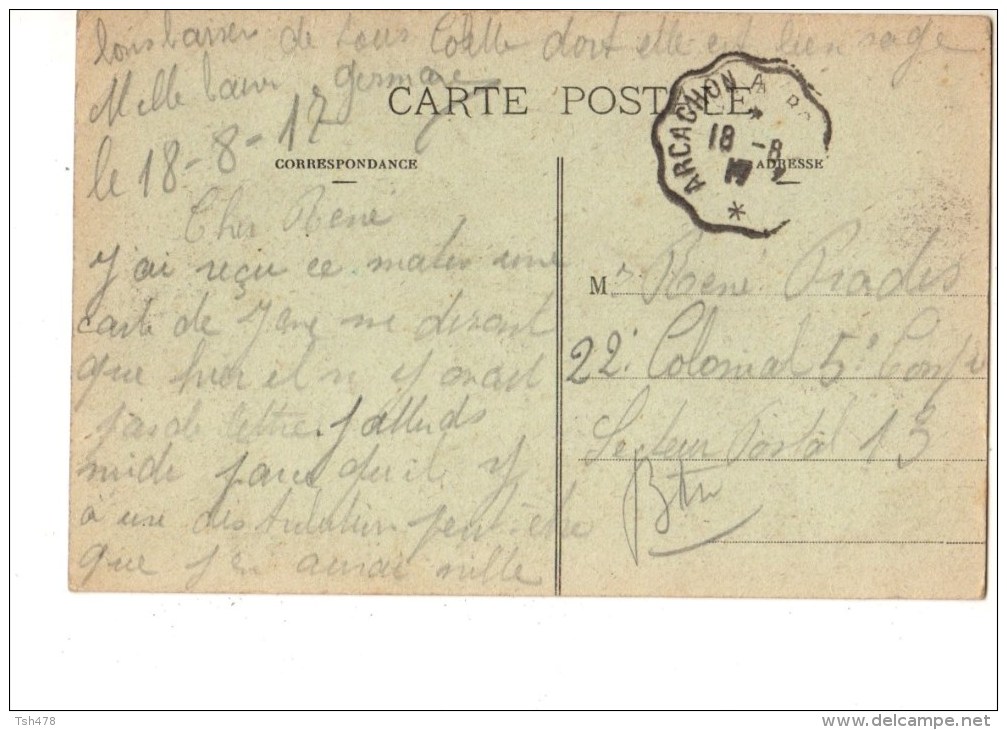 bons baisers de tous Colette dort elle est bien sage
Mille baisers Germaine
le 18-8-17
CARTE POSTALE
CORRESPONDANCE
ADRESSE
ARCACHON A
18 -8
17
Cher René
J'ai reçu ce matin une
carte de me disant
que hier il n y avait
pas de lettre. J'attends
midi parce qu'il y
à une distribution peut-être
que j'en aurai mille
M r René Prades
22e Colonial 5e Comp
Secteur Postal 13
Tsh478
www.delcampe.net